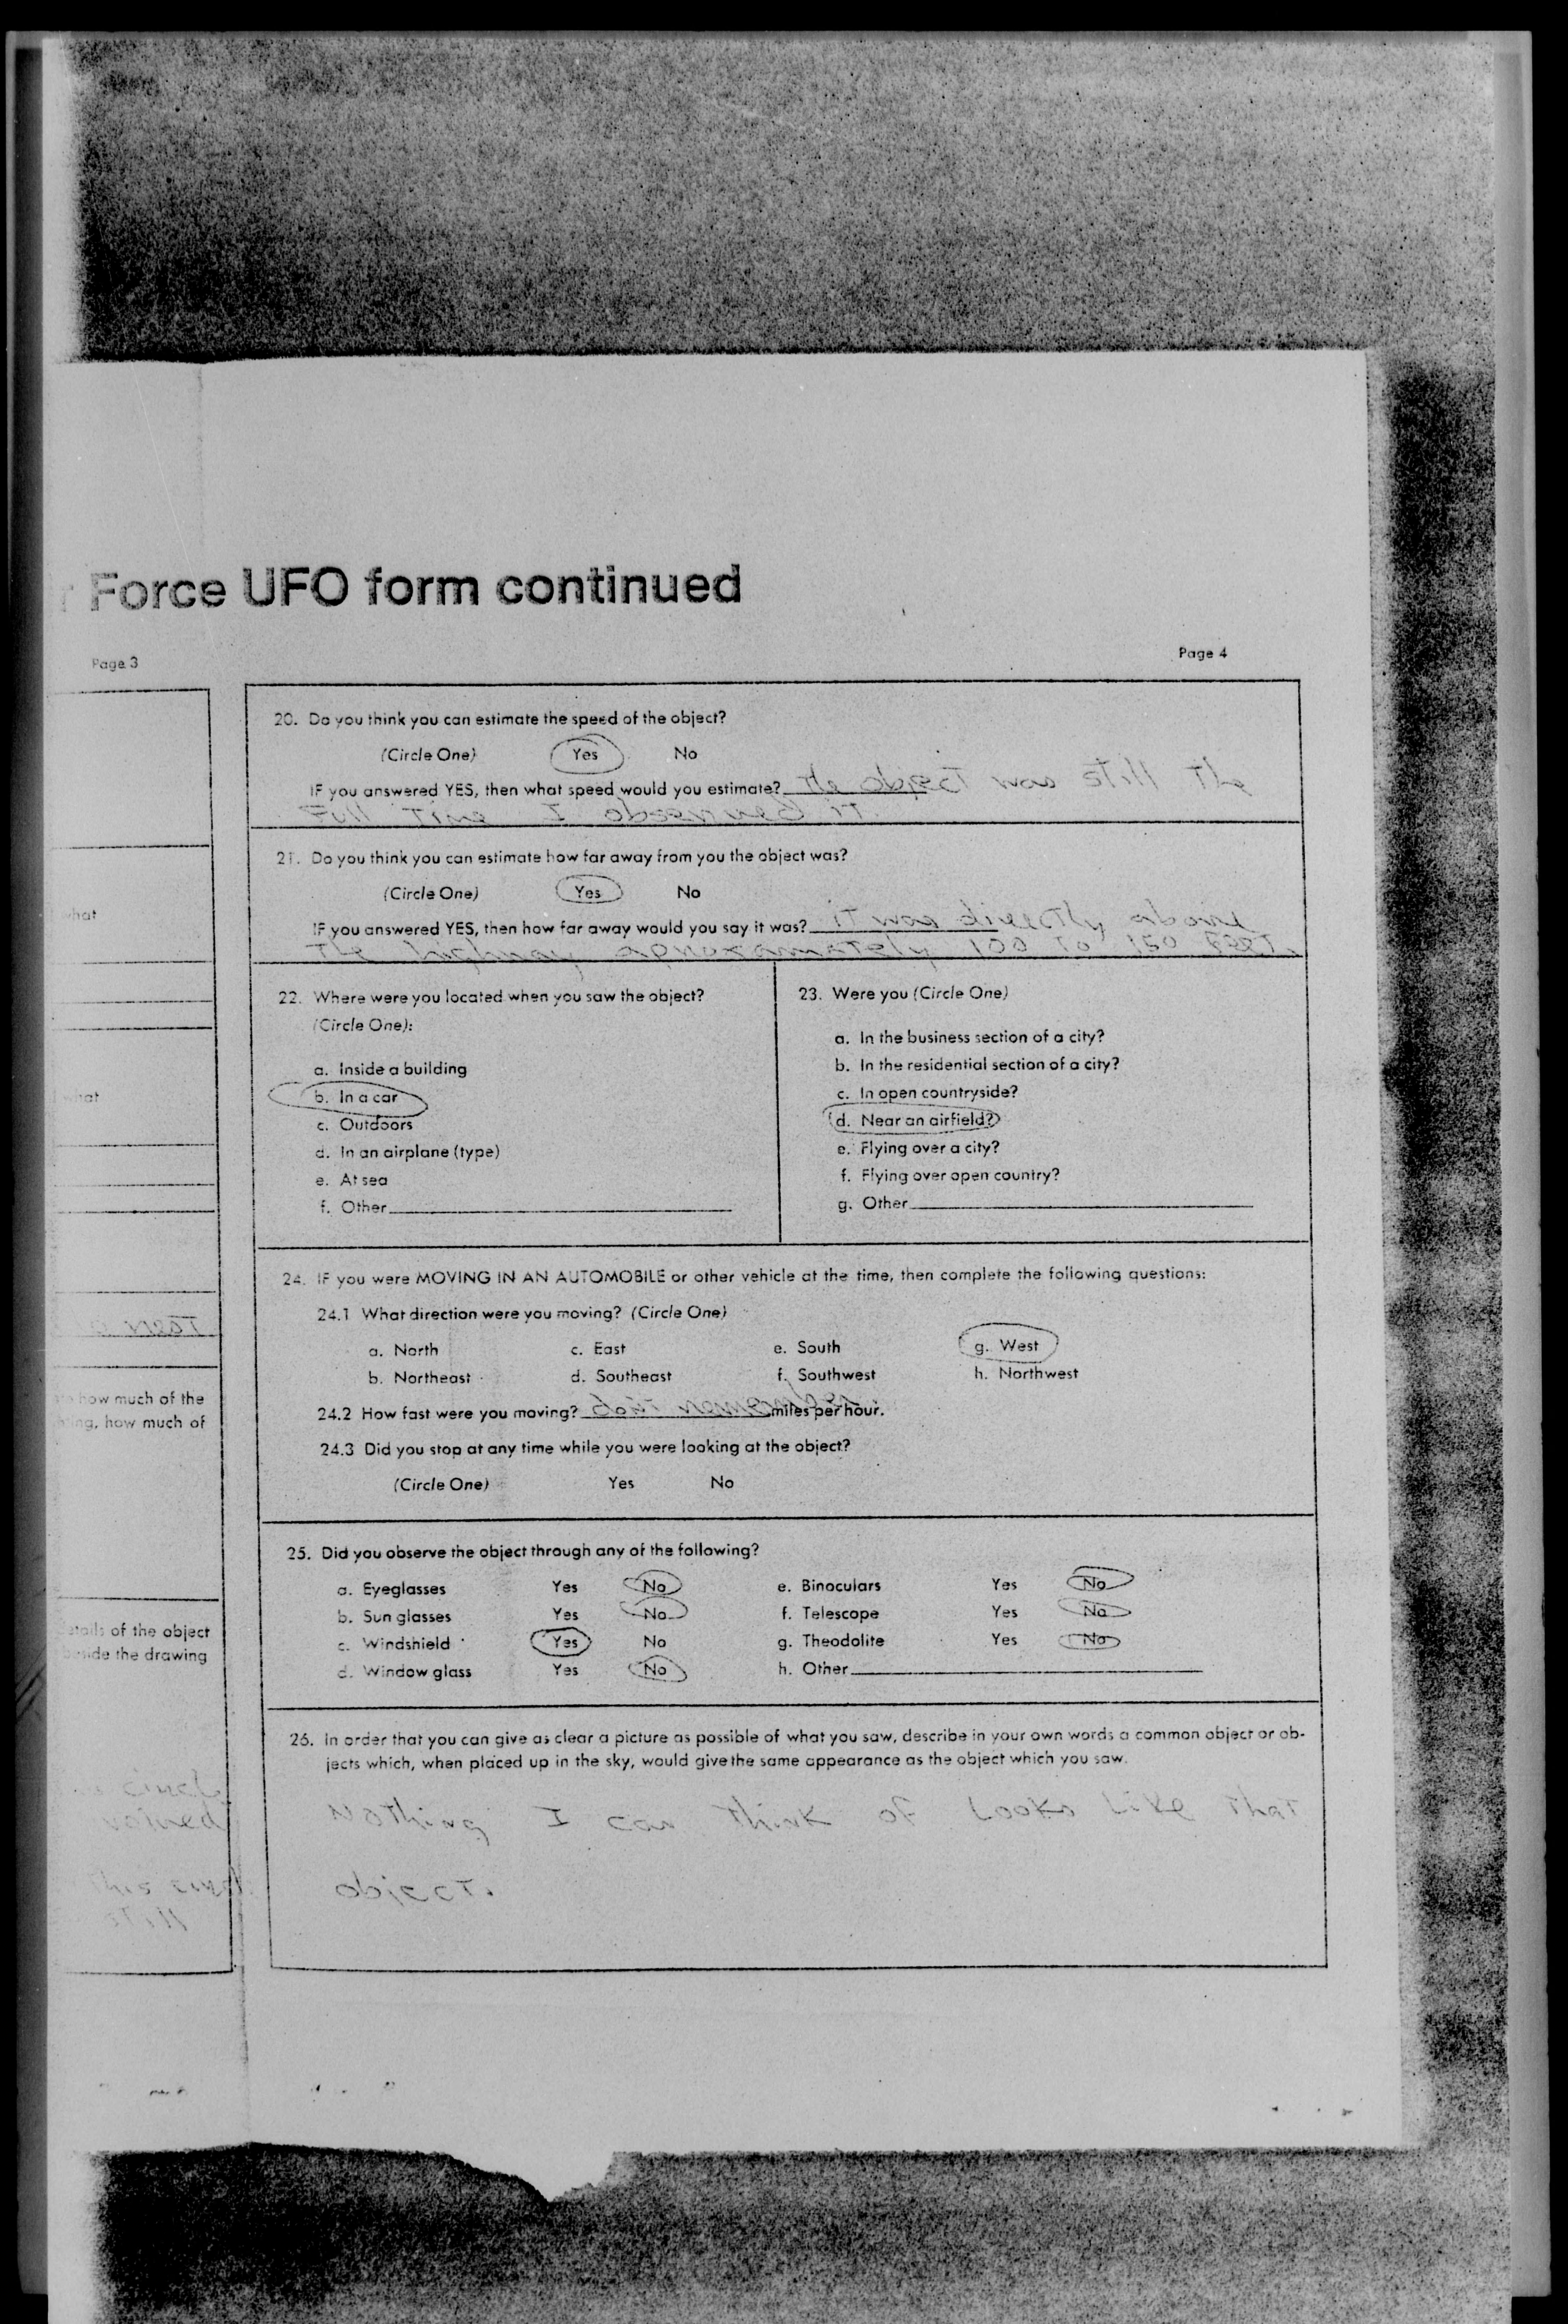 Force UFO form continued
Page 3
what
what
o neaT
how much of the
how much of
of the object
the drawing
circl
this
still
Page 4
20. Do you think you can estimate the speed of the object?
(Circle One) Yes No
IF you answered YES, then what speed would you estimate? the objecT was still The
Full Time I observed iT.
21. Do you think you can estimate how far away from you the object was?
(Circle One) Yes No
IF you answered YES, then how far away would you say it was? iT was direcTly above
The highway aproxamaTely 100 To 150 FeeT.
22. Where were you located when you saw the object?
(Circle One):
a. Inside a building
b. In a car
c. Outdoors
d. In an airplane (type)
e. At sea
f. Other
23. Were you (Circle One)
a. In the business section of a city?
b. In the residential section of a city?
c. In open countryside?
d. Near an airfield?
e. Flying over a city?
f. Flying over open country?
g. Other
24. IF you were MOVING IN AN AUTOMOBILE or other vehicle at the time, then complete the following questions:
24.1 What direction were you moving? (Circle One)
a. North c. East e. South g. West
b. Northeast d. Southeast f. Southwest h. Northwest
24.2 How fast were you moving? don'T remember. miles per hour.
24.3 Did you stop at any time while you were looking at the object?
(Circle One) Yes No
25. Did you observe the object through any of the following?
a. Eyeglasses Yes No e. Binoculars Yes No
b. Sun glasses Yes No f. Telescope Yes No
c. Windshield Yes No g. Theodolite Yes No
d. Window glass Yes No h. Other
26. In order that you can give as clear a picture as possible of what you saw, describe in your own words a common object or ob-
jects which, when placed up in the sky, would give the same appearance as the object which you saw.
NoThing I can Think of Looks Like ThaT
objecT.